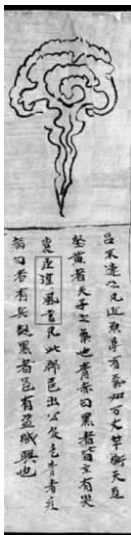 呂不違云凡近原阜有氣如万丈竿衝天直
竪黃者天子之氣也青赤白黑者皆主有災
喪臣淳風言凡此郡邑出公侯色青者疾
病白者有兵起黑者邑有盗賊興也